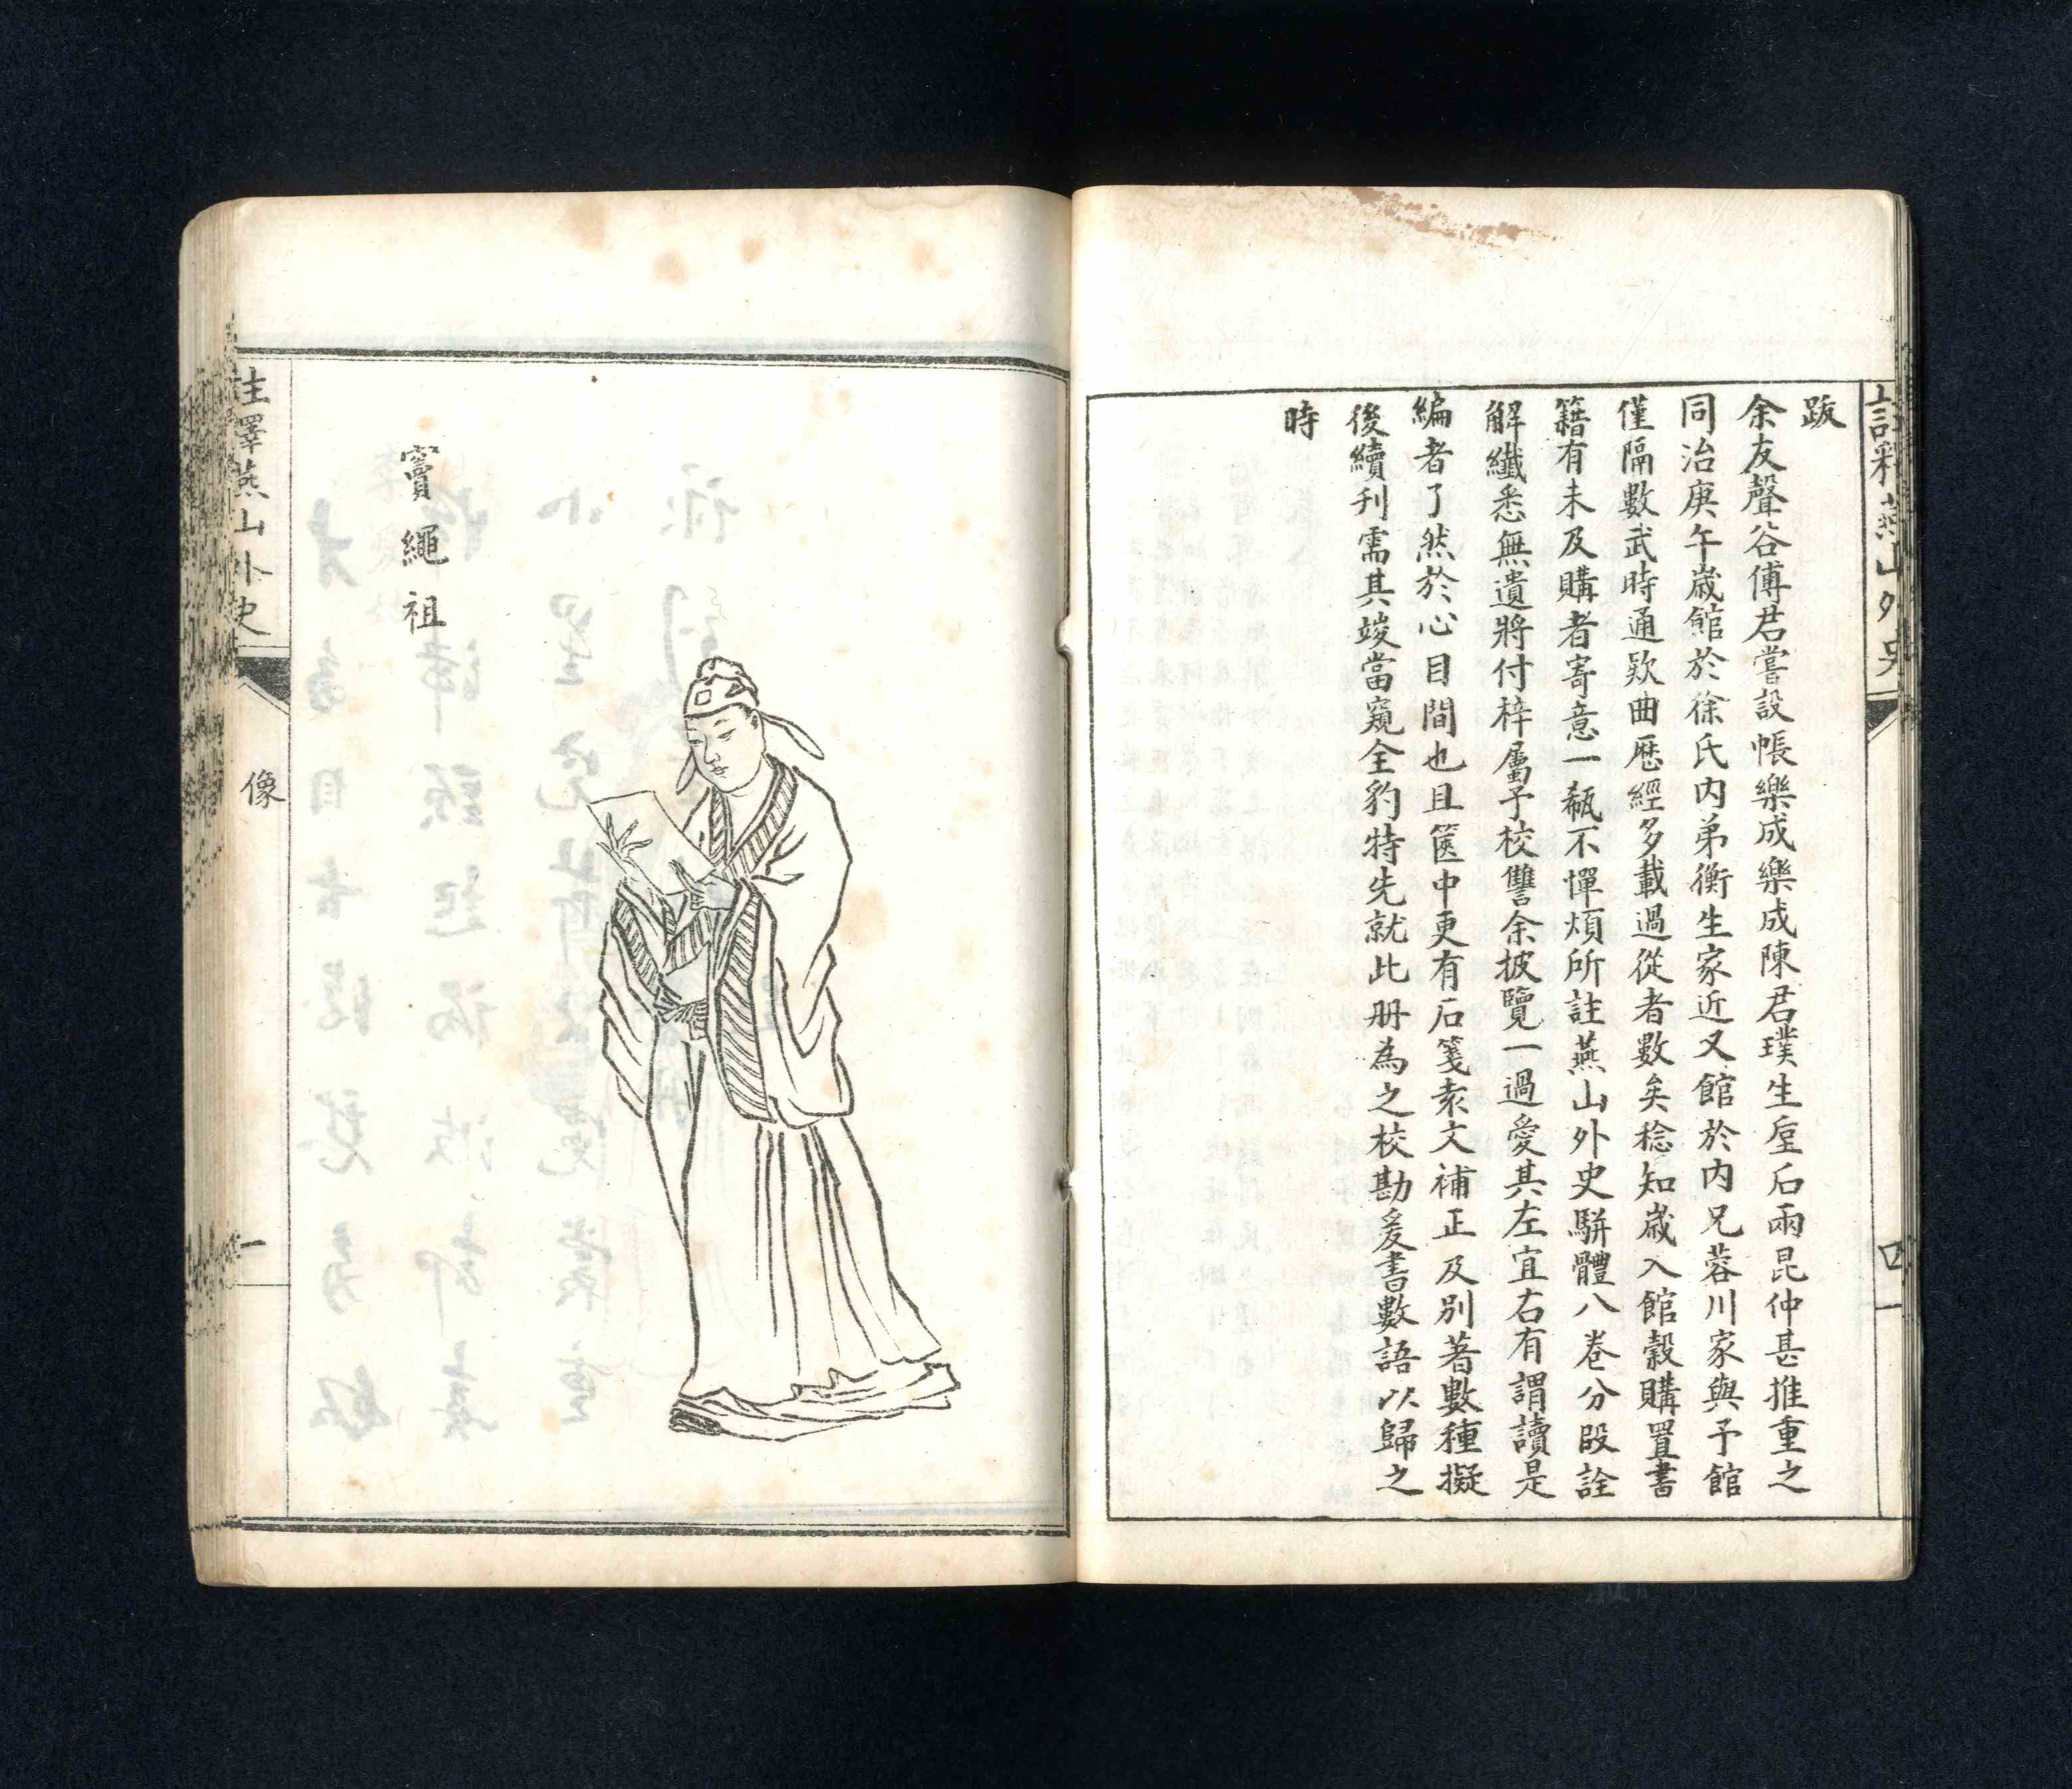 註釋燕山外史
四
一
跋
余友聲谷傅君嘗設帳樂成樂成陳君璞生厔后兩昆仲甚推重之
同治庚午歲館於徐氏內弟衡生家近又館於內兄蓉川家與予館
僅隔數武時通欵曲歷經多載過從者數矣稔知歲入館穀購置書
籍有未及購者寄意一瓻不憚煩所註燕山外史駢體八卷分段詮
解纖悉無遺將付梓屬予校讐余披覽一過愛其左宜右有謂讀是
編者了然於心目間也且篋中更有后箋彔文補正及別著數種擬
後續刊需其竣當窺全豹特先就此册為之校勘爰書數語以歸之
時
竇繩祖
註釋燕山外史
像
一